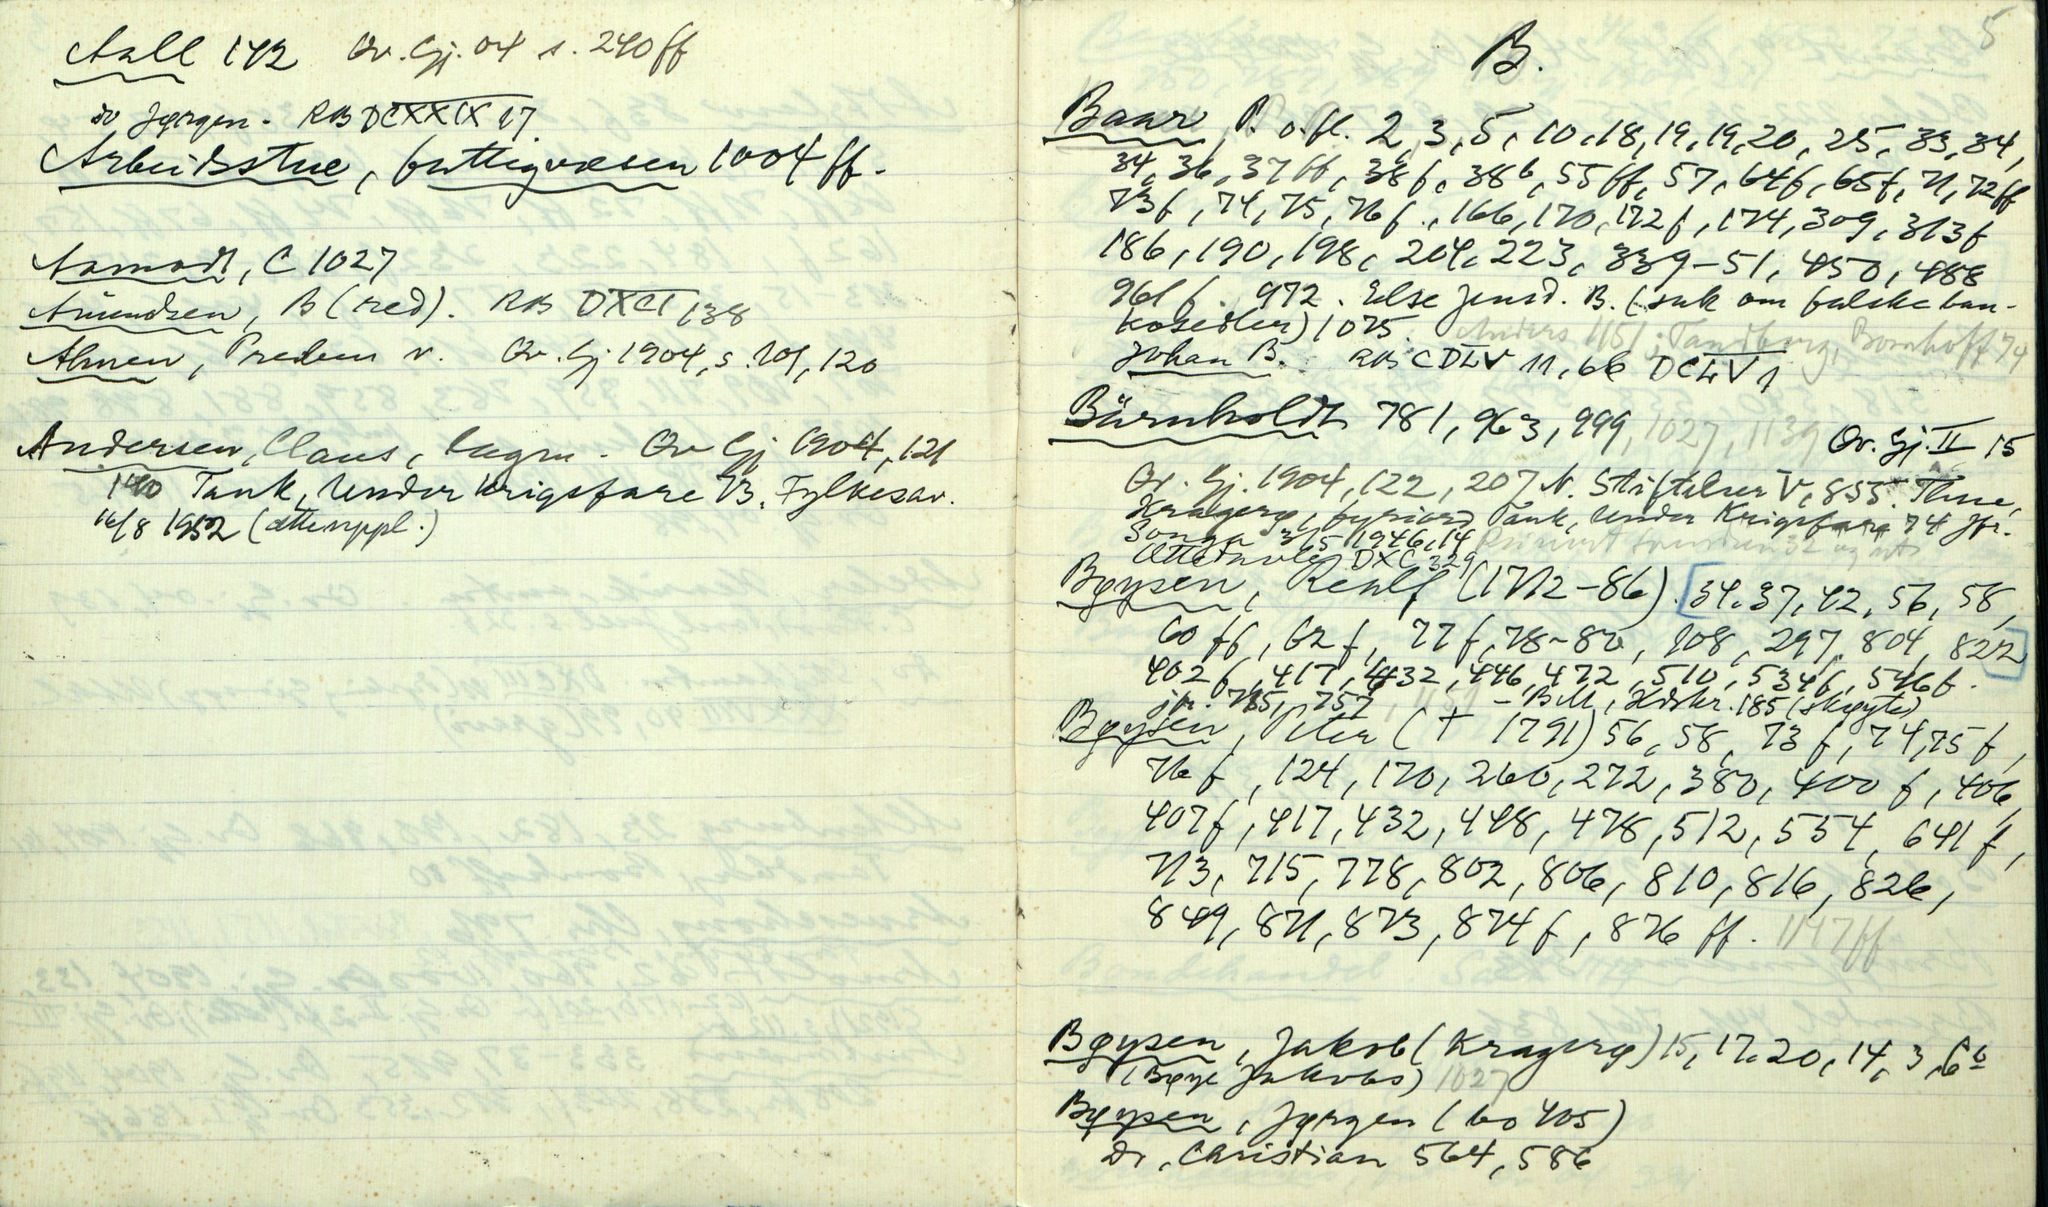 Aall 142 Qv. Gj. 04 s. 240 ff
do Jørgen. RB DCXXIX 17.
Arbeidsstue, fattigvæsen 1004 ff.
Aamodt, C 1027
Amundsen, B (red). RB DXCI 138
Ahnen, Preben v. Qv. Gj 1904, s. 101, 120
Andersen, Claus, lagm. Qv Gj 1904, 121
140 Tank, Under Krigsfare 13. Fylkesav.
16/8 1952 (ætteoppl.)
5
B.
Baar, P. o. fl. 2, 3, 5, 10, 18, 19, 19, 20, 25, 33, 34,
34, 36, 37 ff, 38 f, 386, 55 ff, 57, 64 f, 65 f, 71, 72 ff
73 f, 74, 75, 76 f., 166, 170, 172 f, 174, 309, 313 f
186, 190, 198, 204, 223, 339-51, 450, 488
961 f. 972. Else Jensd. B. (sak om falske ban-
kosedler) 1075. Anders 1151. Tandberg, Bornhoft 74
Johan B. RB CDLV 11, 66 DCLV 1
Bürnholdt 781, 963, 999, 1027, 1139 Qv. Gj. II 15
Qv. Gj. 1904, 122, 207 N. Stiftelser V, 855.
Kragerø, Tank, Under Krigsfare 74 Jfr.
3/5 1946, 14
DXC 329
Bøysen, Realf (1712-86). [34, 37, 42, 56, 58,
60 ff, 62 f, 77 f, 78-80, 108, 297, 804, 822]
402 f, 417, 432, 446, 472, 510, 534 f, 546 f.
jfr. 715, 757, 1151 - Bill, Hdskr. 185 (skøyte)
Bøysen, Peter († 1791) 56, 58, 73 f, 74, 75 f,
76 f, 124, 170, 260, 272, 380, 400 f, 406,
407 f, 417, 432, 448, 478, 512, 554, 641 f,
713, 715, 778, 802, 806, 810, 816, 826,
849, 871, 873, 874 f, 876 ff. 1147 ff
Bøysen, Jakob (Kragerø) 15, 17, 20, 14, 3, 60
(Bøye Jakobs) 1027
Bøysen, Jørgen (bo 405)
Do, Christian 564, 586